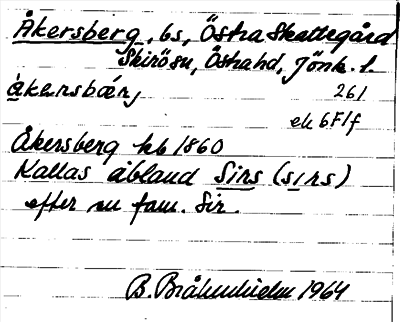 Åkersberg, bs, Östra Skattegård
Skirö sn, Östra hd, Jönk. l.
åkersbærj
261
ek 6F1f
Åkersberg hb 1860
Kallas ibland Sirs (sırs)
efter en fam. Sir.
B. Bråkenhielm 1964